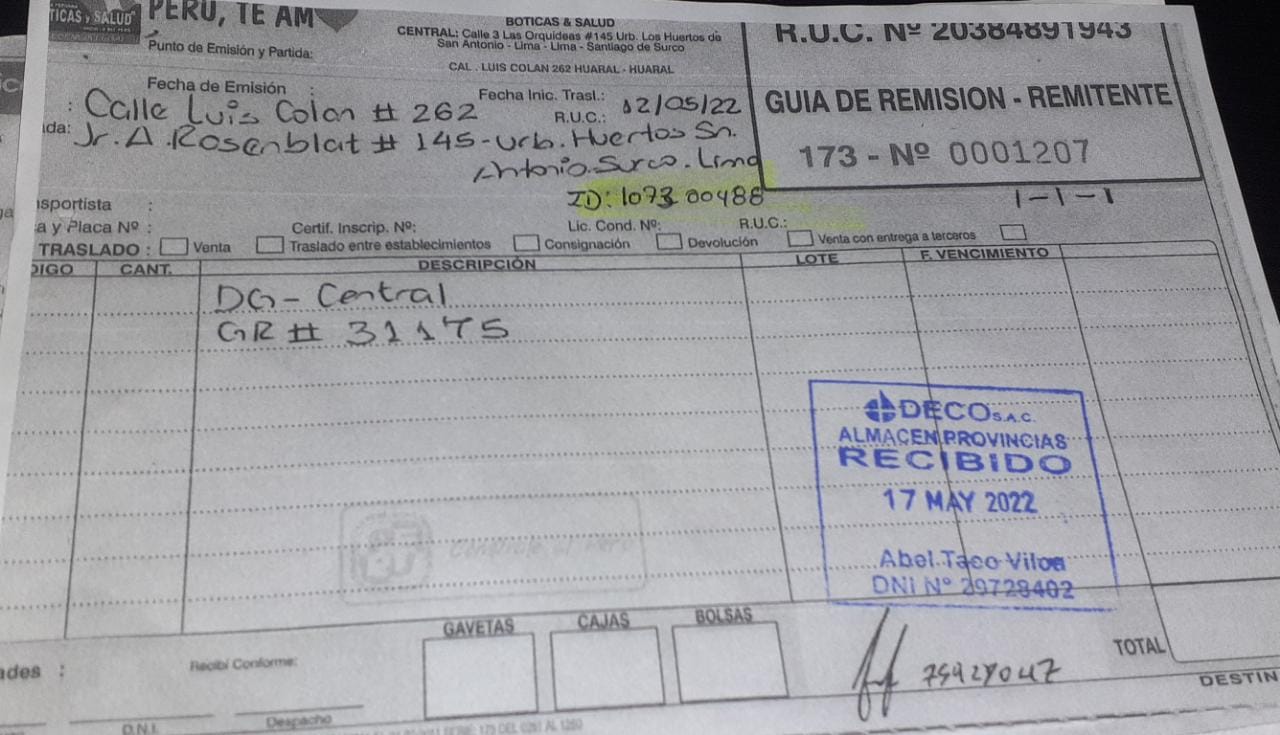 TICAS y SALUD
PERU, TE AM
BOTICAS & SALUD
CENTRAL: Calle 3 Las Orquideas #145 Urb. Los Huertos de
San Antonio - Lima - Lima - Santiago de Surco
CAL . LUIS COLAN 262 HUARAL - HUARAL
R.U.C. Nº 20384891943
GUIA DE REMISION - REMITENTE
173 - Nº 0001207
Punto de Emisión y Partida:
Fecha de Emisión :
Fecha Inic. Trasl.: 12/05/22
: Calle Luis Colan # 262
R.U.C.:
ida: Jr. A. Rosenblat # 145 - Urb. Huertos Sn.
Antonio. Surco. Lima
ID: 1073 00488
1-1-1
nsportista :
a y Placa Nº :
Certif. Inscrip. Nº:
Lic. Cond. Nº:
R.U.C.:
TRASLADO : Venta Traslado entre establecimientos Consignación Devolución Venta con entrega a terceros
DIGO CANT. DESCRIPCIÓN LOTE F. VENCIMIENTO
DG - Central
GR # 31175
DECO S.A.C.
ALMACEN PROVINCIAS
RECIBIDO
17 MAY 2022
Abel Taco Viloa
DNI Nº 29728402
GAVETAS CAJAS BOLSAS
TOTAL
ades :
Recibí Conforme:
75429047
DESTIN
D.N.I.
Despacho